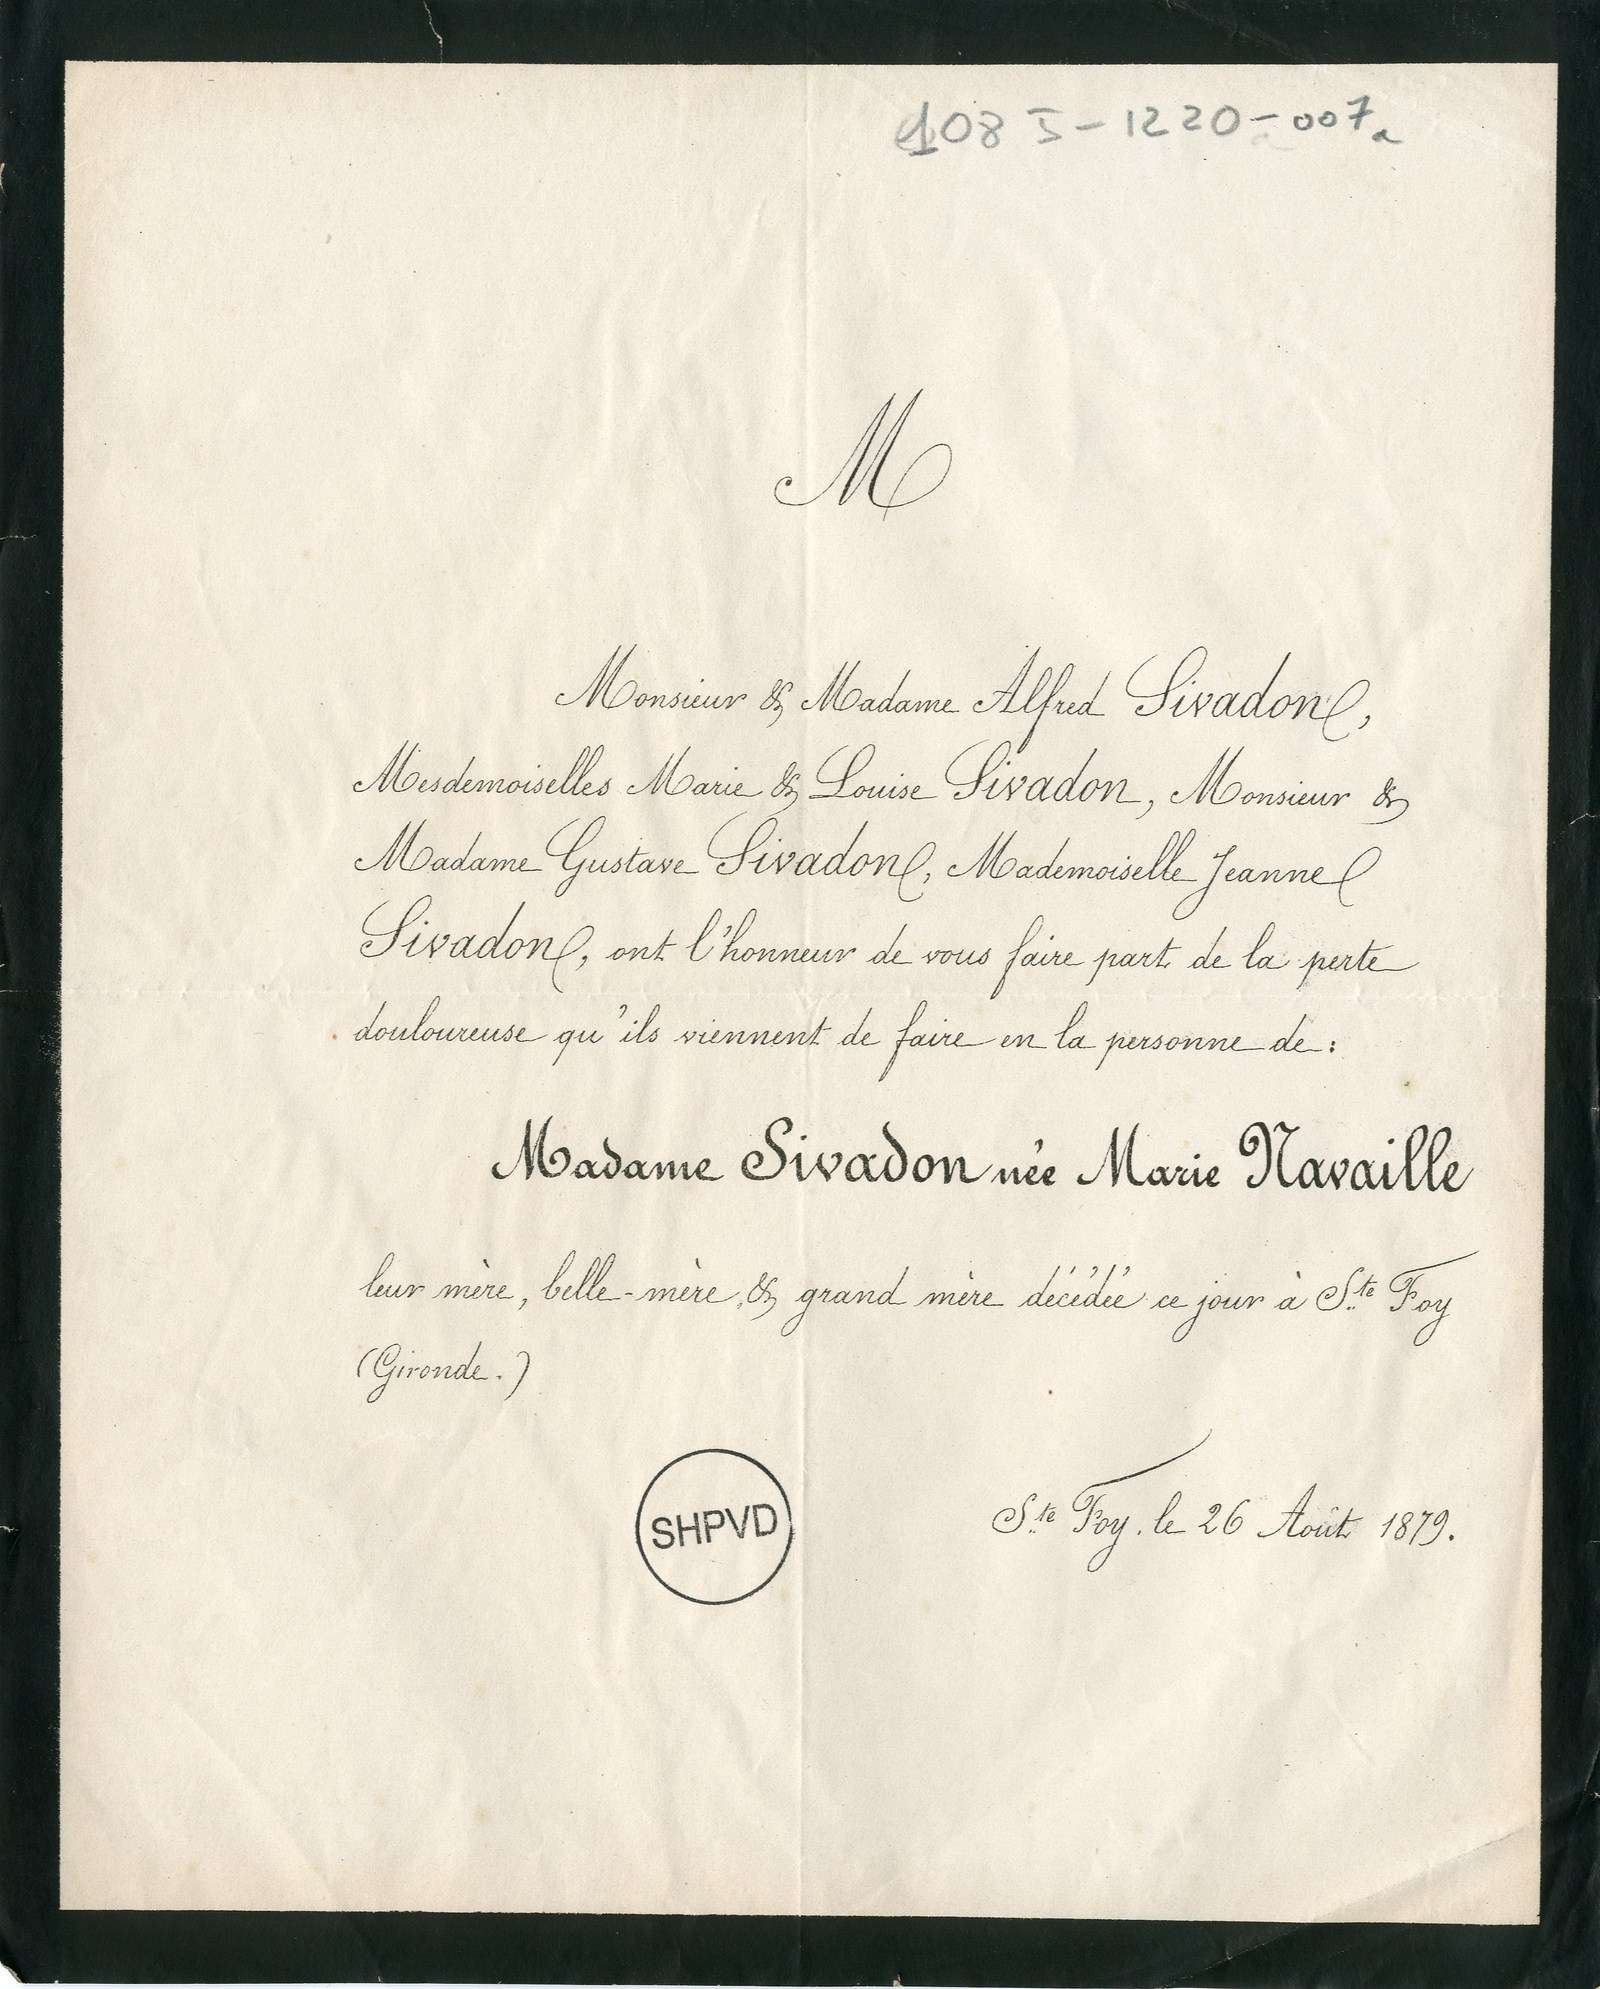 108 J - 1220 - 007a
M
Monsieur & Madame Alfred Sivadon,
Mesdemoiselles Marie & Louise Sivadon, Monsieur &
Madame Gustave Sivadon, Mademoiselle Jeanne
Sivadon, ont l'honneur de vous faire part de la perte
douloureuse qu'ils viennent de faire en la personne de :
Madame Sivadon née Marie Navaille
leur mère, belle-mère, & grand mère décédée ce jour à Ste Foy
(Gironde.)
SHPVD
Ste Foy, le 26 Août 1879.